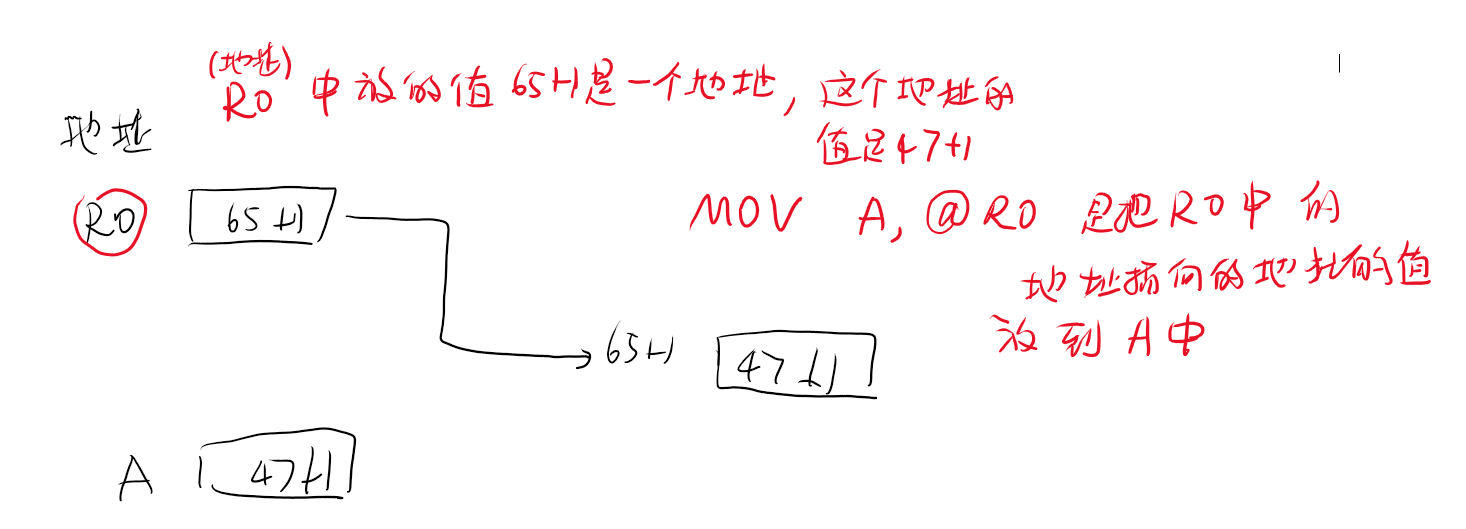 (地址)
R0 中放的值 65H是一个地址, 这个地址的
值是47H
地址
R0 65H
MOV A, @R0 是把R0中的
地址指向的地址的值
放到A中
65H 47H
A 47H